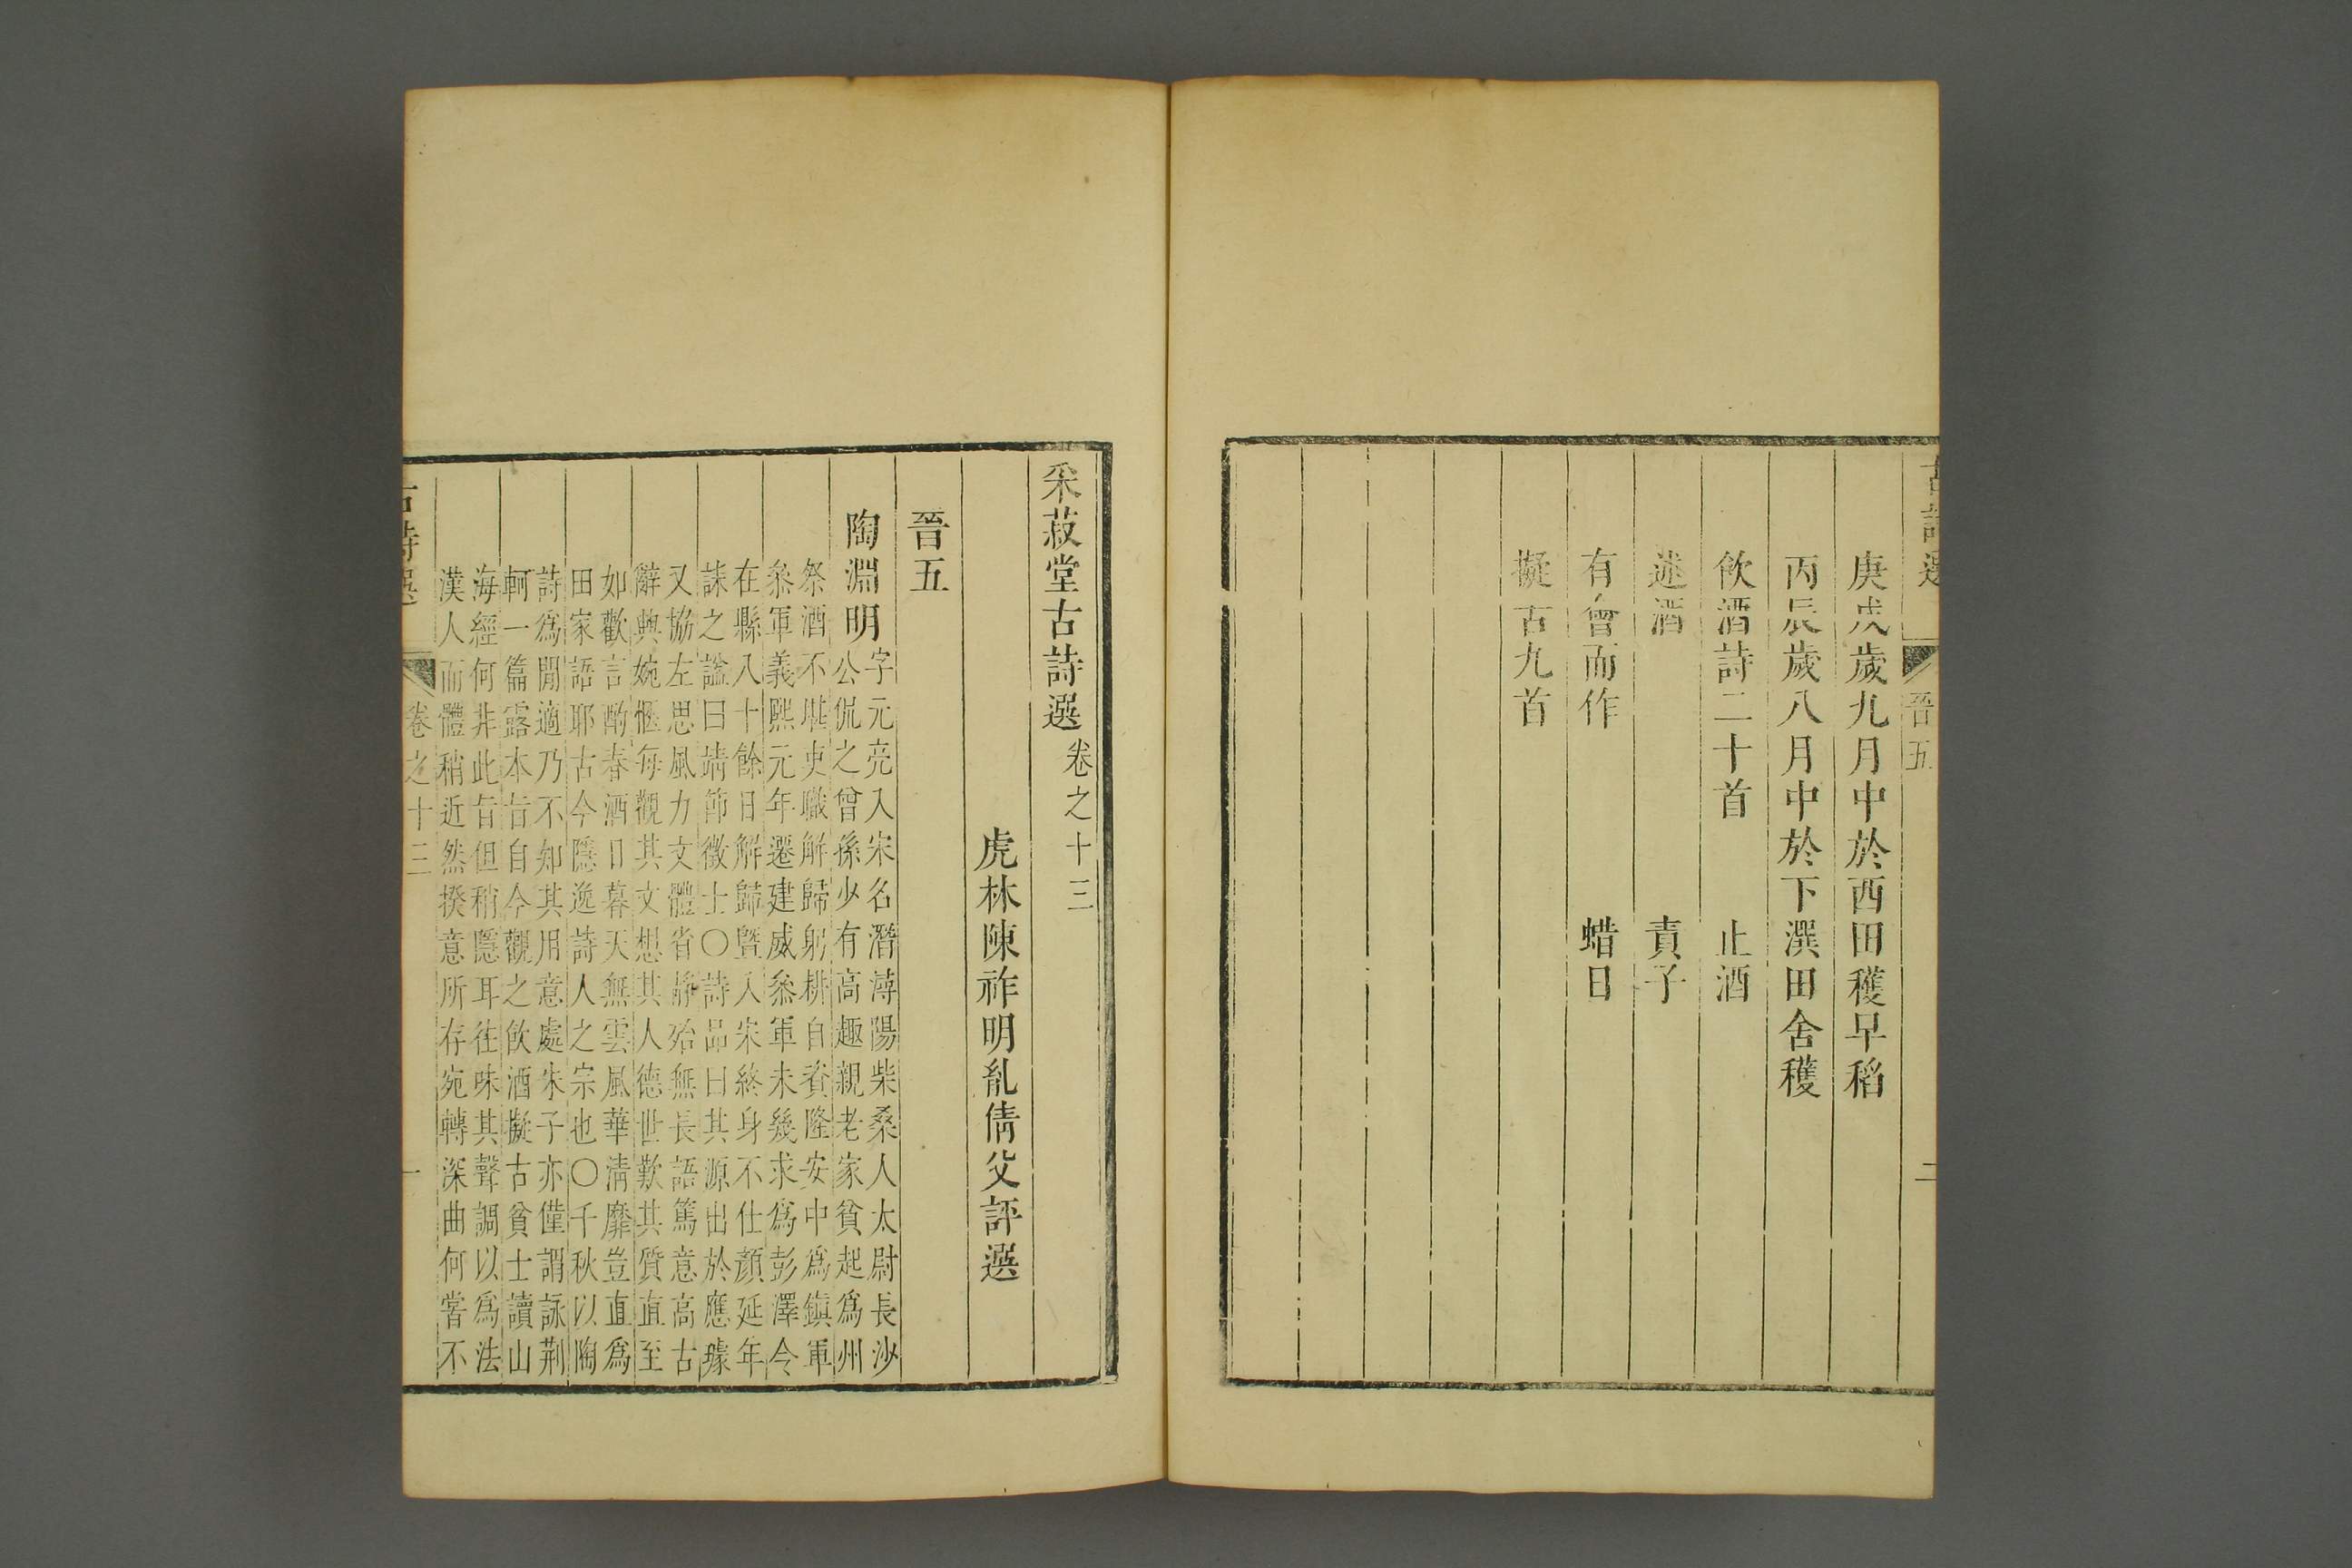 古詩選 晉五 二
庚戌歲九月中於西田穫早稻
丙辰歲八月中於下潠田舍穫
飲酒詩二十首 止酒
述酒 責子
有會而作 蜡日
擬古九首
采菽堂古詩選卷之十三
虎林陳祚明胤倩父評選
晉五
陶淵明
字元亮入宋名潛潯陽柴桑人太尉長沙
公侃之曾孫少有高趣親老家貧起爲州
祭酒不堪吏職解歸躬耕自資隆安中爲鎮軍
叅軍義熙元年遷建威叅軍未幾求爲彭澤令
在縣八十餘日解歸暨入宋終身不仕顏延年
誄之謚曰靖節徵士〇詩品曰其源出於應璩
又協左思風力文體省靜殆無長語篤意高古
辭興婉愜每觀其文想其人德世歎其質直至
如歡言酌春酒日暮天無雲風華清靡豈直爲
田家語耶古今隱逸詩人之宗也〇千秋以陶
詩爲閒適乃不知其用意處朱子亦僅謂詠荆
軻一篇露本旨自今觀之飲酒擬古貧士讀山
海經何非此旨但稍隱耳往味其聲調以爲法
漢人而體稍近然揆意所存宛轉深曲何嘗不
古詩選 卷之十三 一